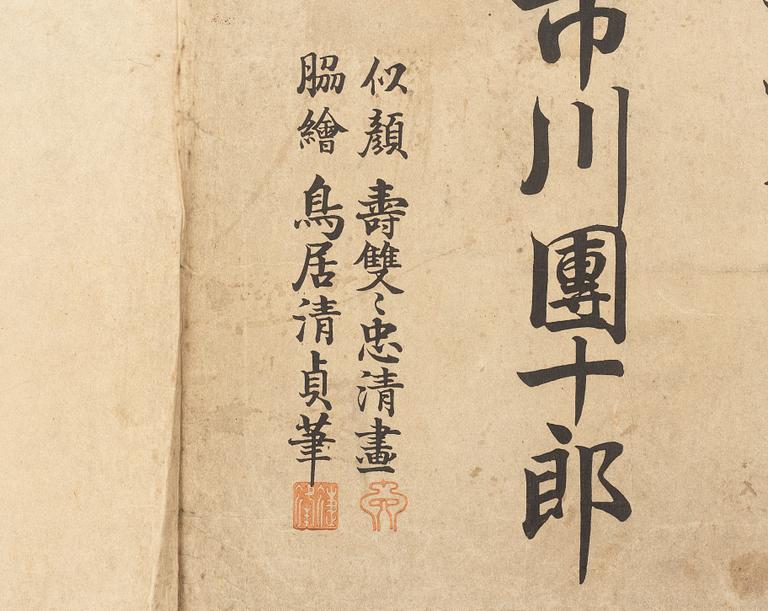 市川團十郎
似顔 壽雙〻忠清畫
脇繪 鳥居清貞筆